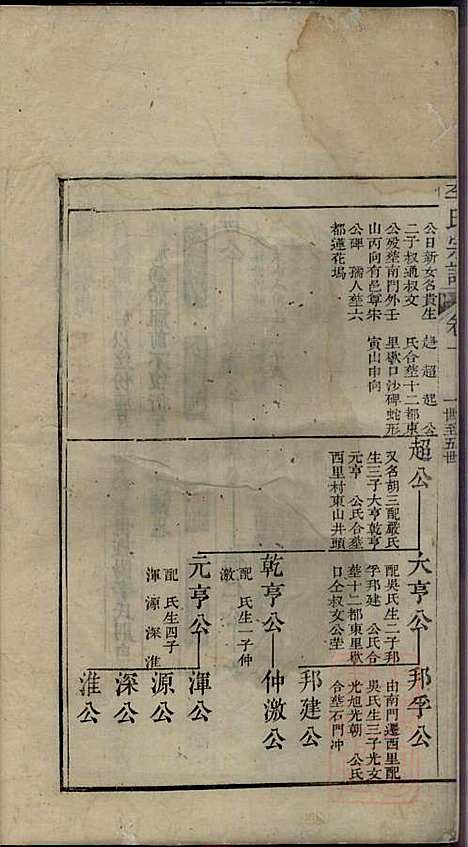 李氏宗譜 卷一 一世至五世
公日新女名貴生
二子叔通叔文
公殁塟南門外壬
山丙向有邑尊朱
公碑 孺人塟六
都蓮花塢
趂 超 起 公
氏合塟十二都東
里墩口沙碑蛇形
寅山申向
超公
又名胡三配嚴氏
生三子大亨乾亨
元亨 公氏合塟
西里村東山井頭
大亨公
配吳氏生二子邦
孚邦建 公氏合
塟十二都東里墩
口仝叔文公塋
邦孚公
由南門遷西里配
吳氏生三子光女
光旭光朝 公氏
合塟石門冲
邦建公
乾亨公
配 氏生一子仲
激
仲激公
元亨公
配 氏生四子
渾 源 深 淮
渾公
源公
深公
淮公